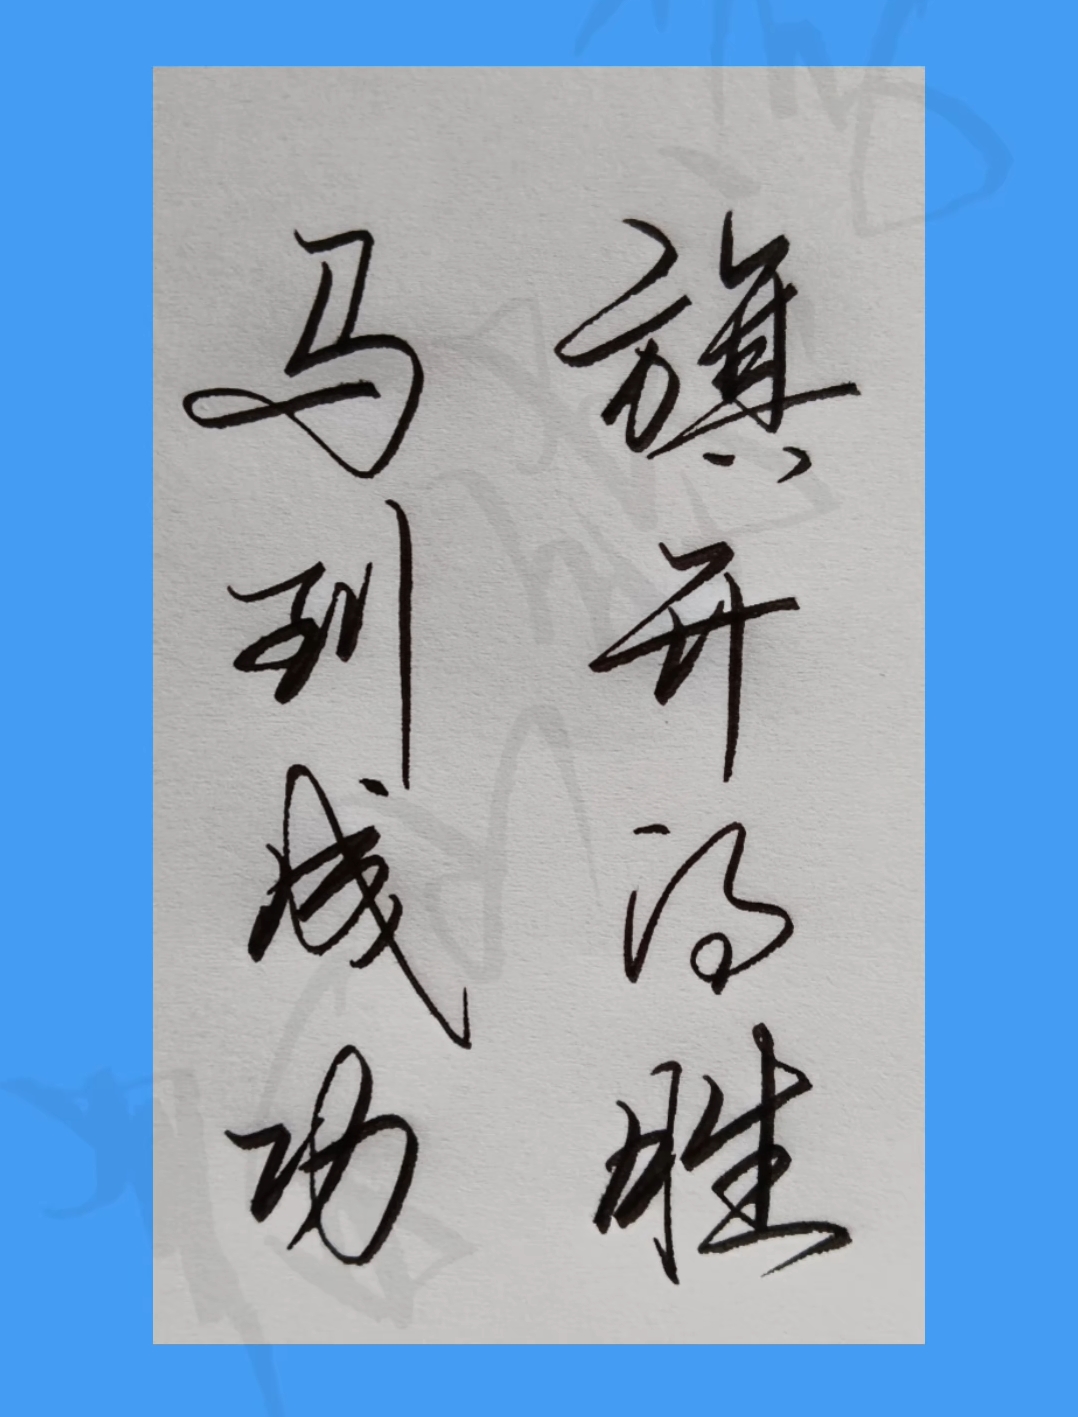 旗开得胜
马到成功